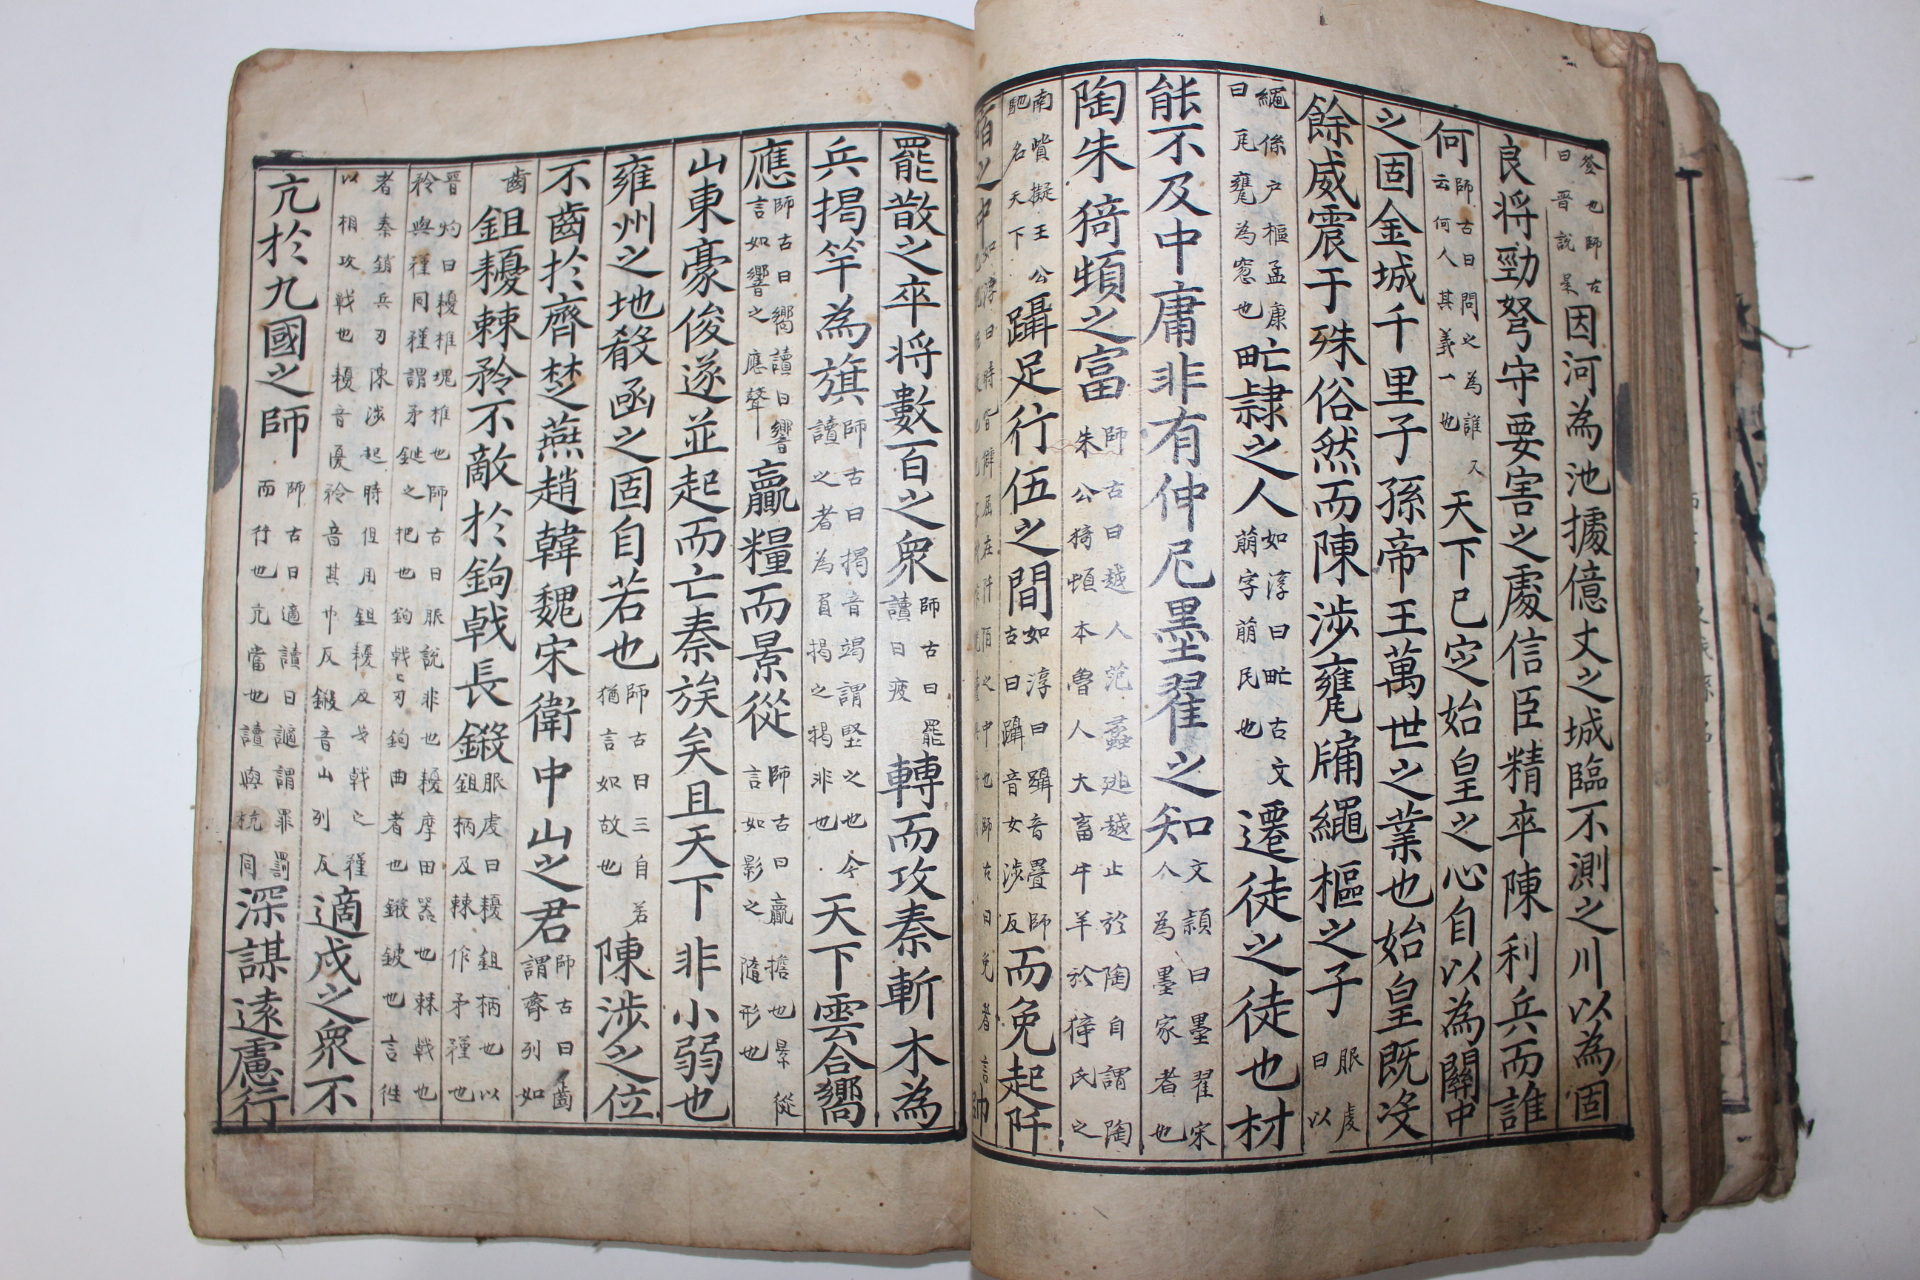 釜也師古曰晋說是因河為池據億丈之城臨不測之川以為固
良将勁弩守要害之處信臣精卒陳利兵而誰
何師古曰問之為誰又云何人其義一也天下已定始皇之心自以為關中
之固金城千里子孫帝王萬世之業也始皇既没
餘威震于殊俗然而陳涉甕牖繩樞之子服虔曰以
繩係户樞孟康曰瓦甕為窓也甿隷之人如淳曰甿古文萠字萠民也遷徒之徒也材
能不及中庸非有仲尼墨翟之知文頴曰墨翟宋人為墨家者也
陶朱猗頓之富師古曰越人范蠡逃越止於陶自謂陶朱公猗頓本魯人大畜牛羊於猗氏之
南貲擬王公馳名天下躡足行伍之間如淳曰躡音疊師古曰躡音女涉反而免起阡
陌之中如淳曰時皆僻屈在阡陌之中也師古曰免者言
罷散之卒将數百之衆師古曰罷讀曰疲轉而攻秦斬木為
兵揭竿為旗師古曰揭音竭謂竪之也今讀之者為負揭之揭非也天下雲合嚮
應師古曰嚮讀曰響言如響之應聲贏糧而景從師古曰贏擔也景從言如影之隨形也
山東豪俊遂並起而亡秦族矣且天下非小弱也
雍州之地殽函之固自若也師古曰三自若猶言如故也陳涉之位
不齒於齊楚燕趙韓魏宋衛中山之君師古曰齒謂齊列如
齒鉏耰棘矜不敵於鉤戟長鎩服虔曰耰鉏柄也以鉏柄及棘作矛矜也
晋灼曰耰椎塊椎也師古曰服說非也耰摩田器也棘戟也矜與穜同穜謂矛鋋之把也鉤戟刃鉤曲者也鎩鈹也言往
者秦銷兵刃陳涉起時但用鉏耰及戈戟之穜以相攻戰也耰音憂矜音其巾反鎩音山列反適戍之衆不
亢於九國之師師古曰適讀曰謫謂罪罰而行也亢當也讀與抗同深謀遠慮行